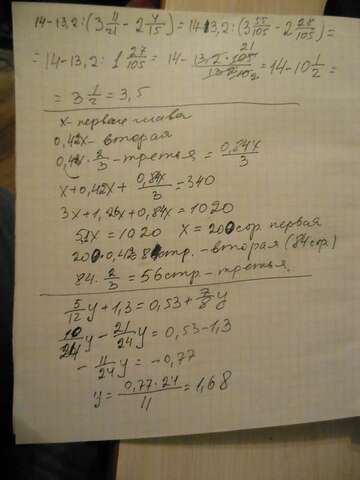 14-13,2:(3 11/21 - 2 4/15) = 14-13,2:(3 55/105 - 2 28/105) =
= 14-13,2 : 1 27/105 = 14 - 132·105/132·10 = 14-10 1/2 =
= 3 1/2 = 3,5
x- первая глава
0,42x- вторая
0,42x· 2/3 - третья = 0,84x/3
x+0,42x+ 0,84x/3 = 340
3x+1,26x+0,84x=1020
5,1x=1020 x=200стр. первая
200·0,42= 84стр. - вторая (84стр.)
84· 2/3 =56стр - третья.
5/12 y+1,3=0,53+ 7/8 y
10/24 y- 21/24 y = 0,53-1,3
- 11/24 y = -0,77
y= 0,77·24/11 =1,68